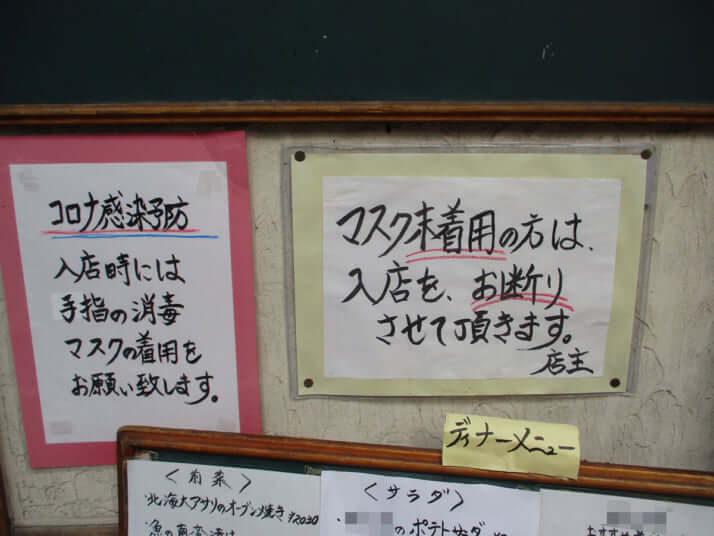 コロナ感染予防
入店時には
手指の消毒
マスクの着用を
お願い致します。
マスク未着用の方は、
入店を、お断り
させて頂きます。
店主
ディナーメニュー
<前菜>
・北海大アサリのオーブン焼き
<サラダ>
のポテトサラダ